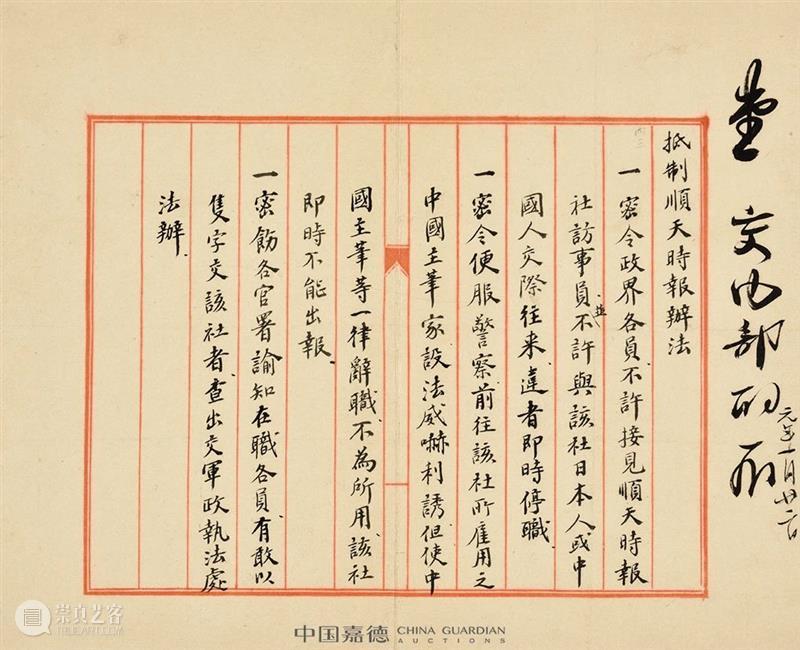 交内部酌
元年一月廿二日
抵制順天時報辦法
一密令政界各員、不許接見順天時報
社訪事員、並不許與該社日本人或中
國人交際往来、違者即時停職、
一密令便服警察、前往該社所雇用之
中國主筆家、設法威嚇利誘、但使中
國主筆等一律辭職、不為所用、該社
即時不能出報、
一密飭各官署諭知在職各員、有敢以
隻字交該社者、查出交軍政執法處
法辦、
崇真艺客
TRUEART.COM
中国嘉德 CHINA GUARDIAN
AUCTIONS